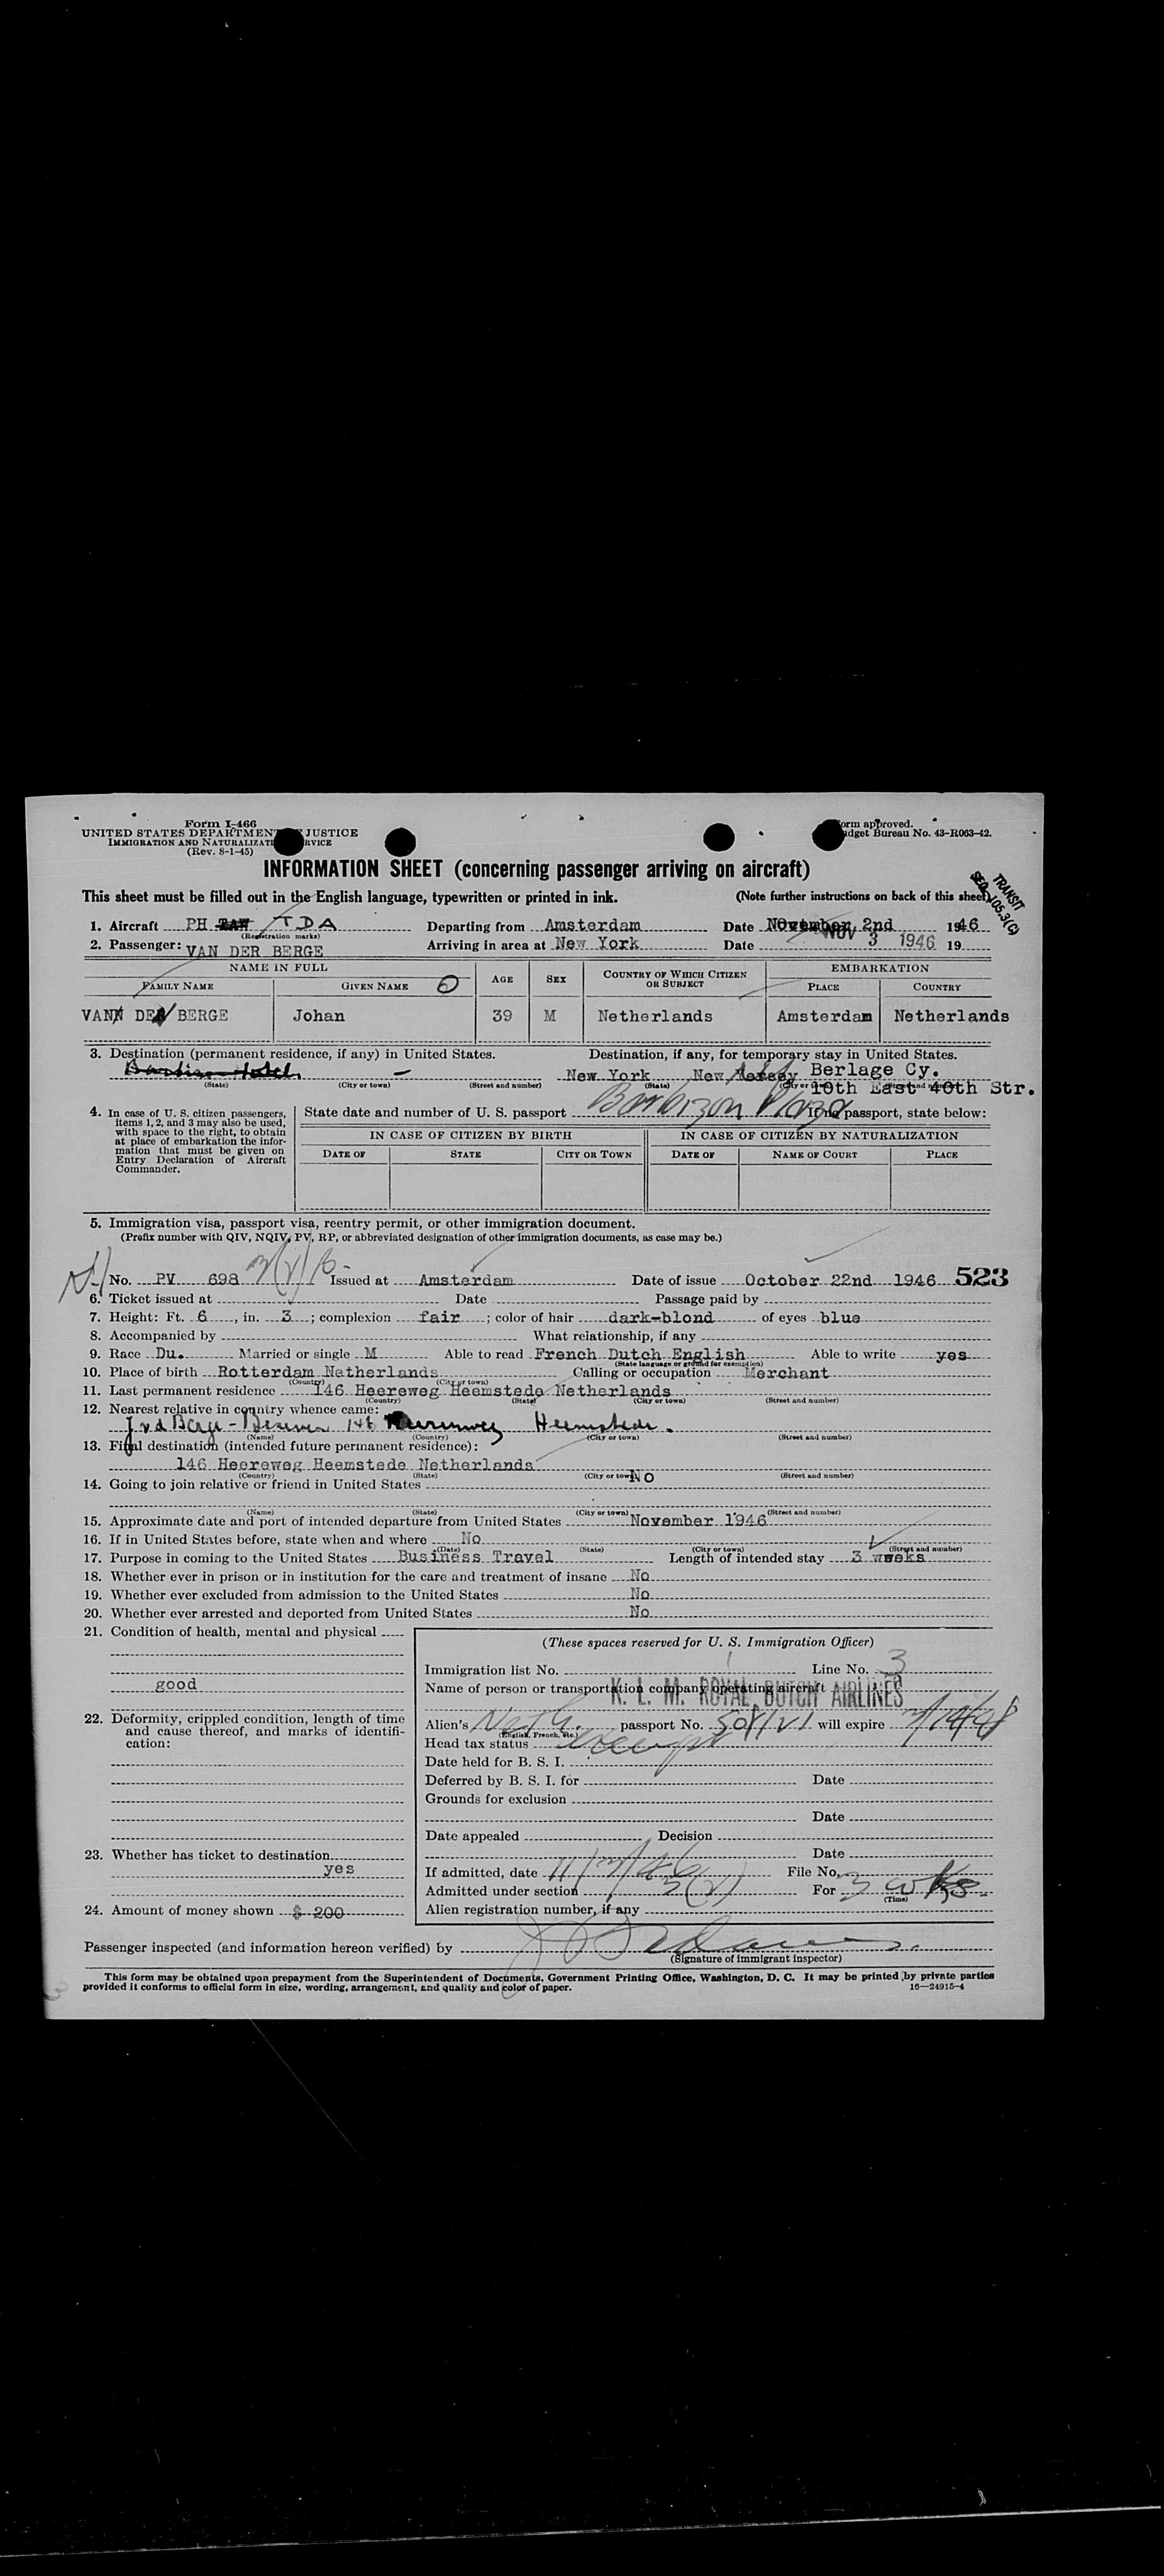 Form I-466
UNITED STATES DEPARTMENT JUSTICE
IMMIGRATION AND
(Rev. 8-1-45)
orm approved.
dget Bureau No. 43-R063-42.
INFORMATION SHEET (concerning passenger arriving on aircraft)
This sheet must be filled out in the English language, typewritten or printed in ink. (Note further instructions on back of this sheet
TRANSIT
SEC. 105.3(C)
1. Aircraft PH TDA Departing from Amsterdam Date November 2nd 1946
(Registration marks)
2. Passenger: VAN DER BERGE Arriving in area at New York Date NOV 3 1946 19
NAME IN FULL AGE SEX COUNTRY OF WHICH CITIZEN OR SUBJECT EMBARKATION
FAMILY NAME GIVEN NAME PLACE COUNTRY
VAN DE BERGE Johan 39 M Netherlands Amsterdam Netherlands
3. Destination (permanent residence, if any) in United States. Destination, if any, for temporary stay in United States.
New York New Jersey Berlage Cy.
(State) (City or town) (Street and number) (State)
10th East 40th Str.
Barbizon Plaza
4. In case of U. S. citizen passengers, items 1, 2, and 3 may also be used, with space to the right, to obtain at place of embarkation the information that must be given on Entry Declaration of Aircraft Commander.
State date and number of U. S. passport If no passport, state below:
IN CASE OF CITIZEN BY BIRTH IN CASE OF CITIZEN BY NATURALIZATION
DATE OF STATE CITY OR TOWN DATE OF NAME OF COURT PLACE
5. Immigration visa, passport visa, reentry permit, or other immigration document.
(Prefix number with QIV, NQIV, PV, RP, or abbreviated designation of other immigration documents, as case may be.)
No. PV 698 Issued at Amsterdam Date of issue October 22nd 1946 523
6. Ticket issued at Date Passage paid by
7. Height: Ft. 6, in. 3; complexion fair; color of hair dark-blond of eyes blue
8. Accompanied by What relationship, if any
9. Race Du. Married or single M Able to read French Dutch English Able to write yes
(State language or ground for exemption)
10. Place of birth Rotterdam Netherlands Calling or occupation Merchant
(Country) (City or town)
11. Last permanent residence 146 Heereweg Heemstede Netherlands
(Country) (State) (City or town) (Street and number)
12. Nearest relative in country whence came:
146 Heemstede.
(Name) (Country) (City or town) (Street and number)
13. Final destination (intended future permanent residence):
146 Heereweg Heemstede Netherlands
(Country) (State) (City or town) (Street and number)
14. Going to join relative or friend in United States No
(Name) (State) (City or town) (Street and number)
15. Approximate date and port of intended departure from United States November 1946
16. If in United States before, state when and where No
(Date) (State) (City or town) (Street and number)
17. Purpose in coming to the United States Business Travel Length of intended stay 3 weeks
18. Whether ever in prison or in institution for the care and treatment of insane No
19. Whether ever excluded from admission to the United States No
20. Whether ever arrested and deported from United States No
21. Condition of health, mental and physical
good
22. Deformity, crippled condition, length of time and cause thereof, and marks of identification:
23. Whether has ticket to destination
yes
24. Amount of money shown $ 200
(These spaces reserved for U. S. Immigration Officer)
Immigration list No. 1 Line No. 3
Name of person or transportation company operating aircraft
K. L. M. ROYAL DUTCH AIRLINES
Alien's Neth. passport No. will expire
(English, French, etc.)
Head tax status
Date held for B. S. I.
Deferred by B. S. I. for Date
Grounds for exclusion
Date
Date appealed Decision
Date
If admitted, date File No.
Admitted under section 3(2) For 3 wks
(Time)
Alien registration number, if any
Passenger inspected (and information hereon verified) by
(Signature of immigrant inspector)
This form may be obtained upon prepayment from the Superintendent of Documents, Government Printing Office, Washington, D. C. It may be printed by private parties
provided it conforms to official form in size, wording, arrangement, and quality and color of paper. 16—24915-4